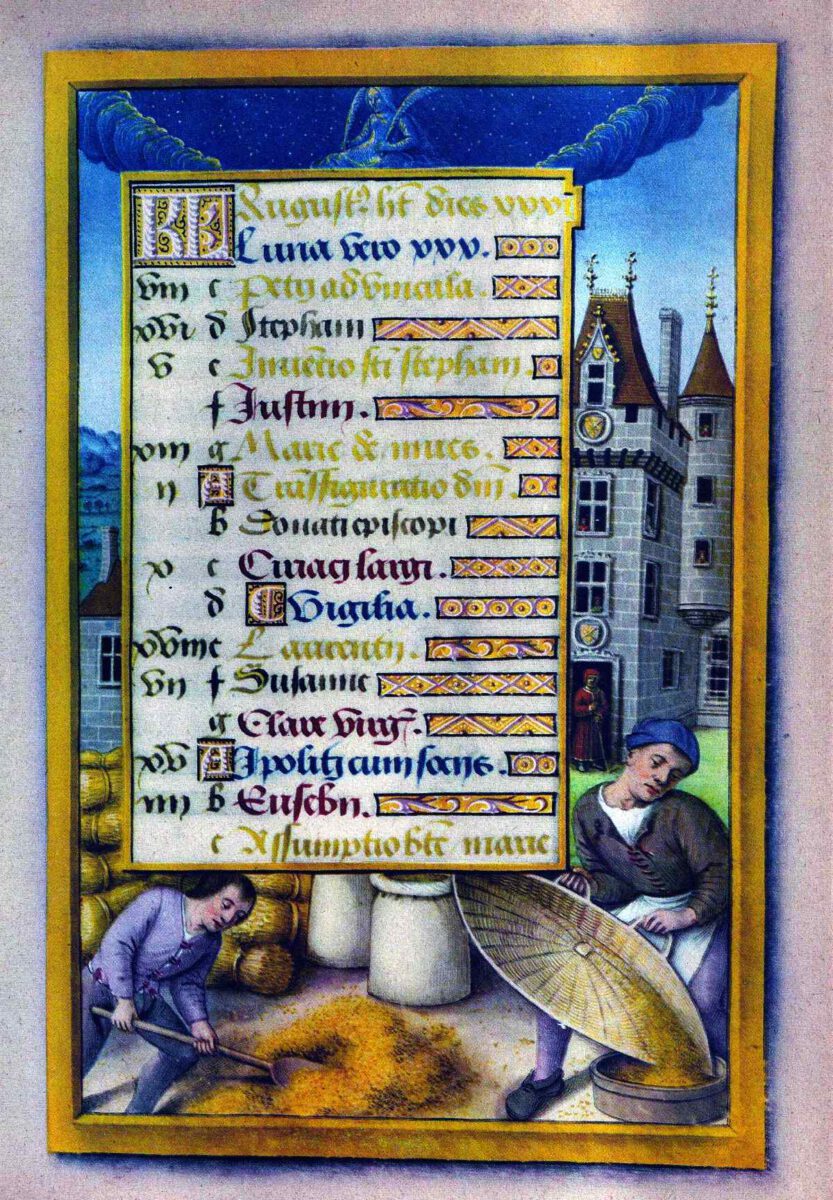 KL August⁹ ht̄ dies xxxi
Luna vero xxx.
viii c Petri ad vincula.
xvi d Stephani
v e Inuētio scī stephani.
f Iustini.
xiii g Marie de niues.
ii A Trāsfiguratio dnī.
b Donati episcopi
x c Ciriaci largi.
d Vigilia.
xviii e Laurentii.
vii f Susanne
g Clare virgīs.
xv A Ipoliti cum sociis.
iiii b Eusebii.
c Assumptio btē marie.